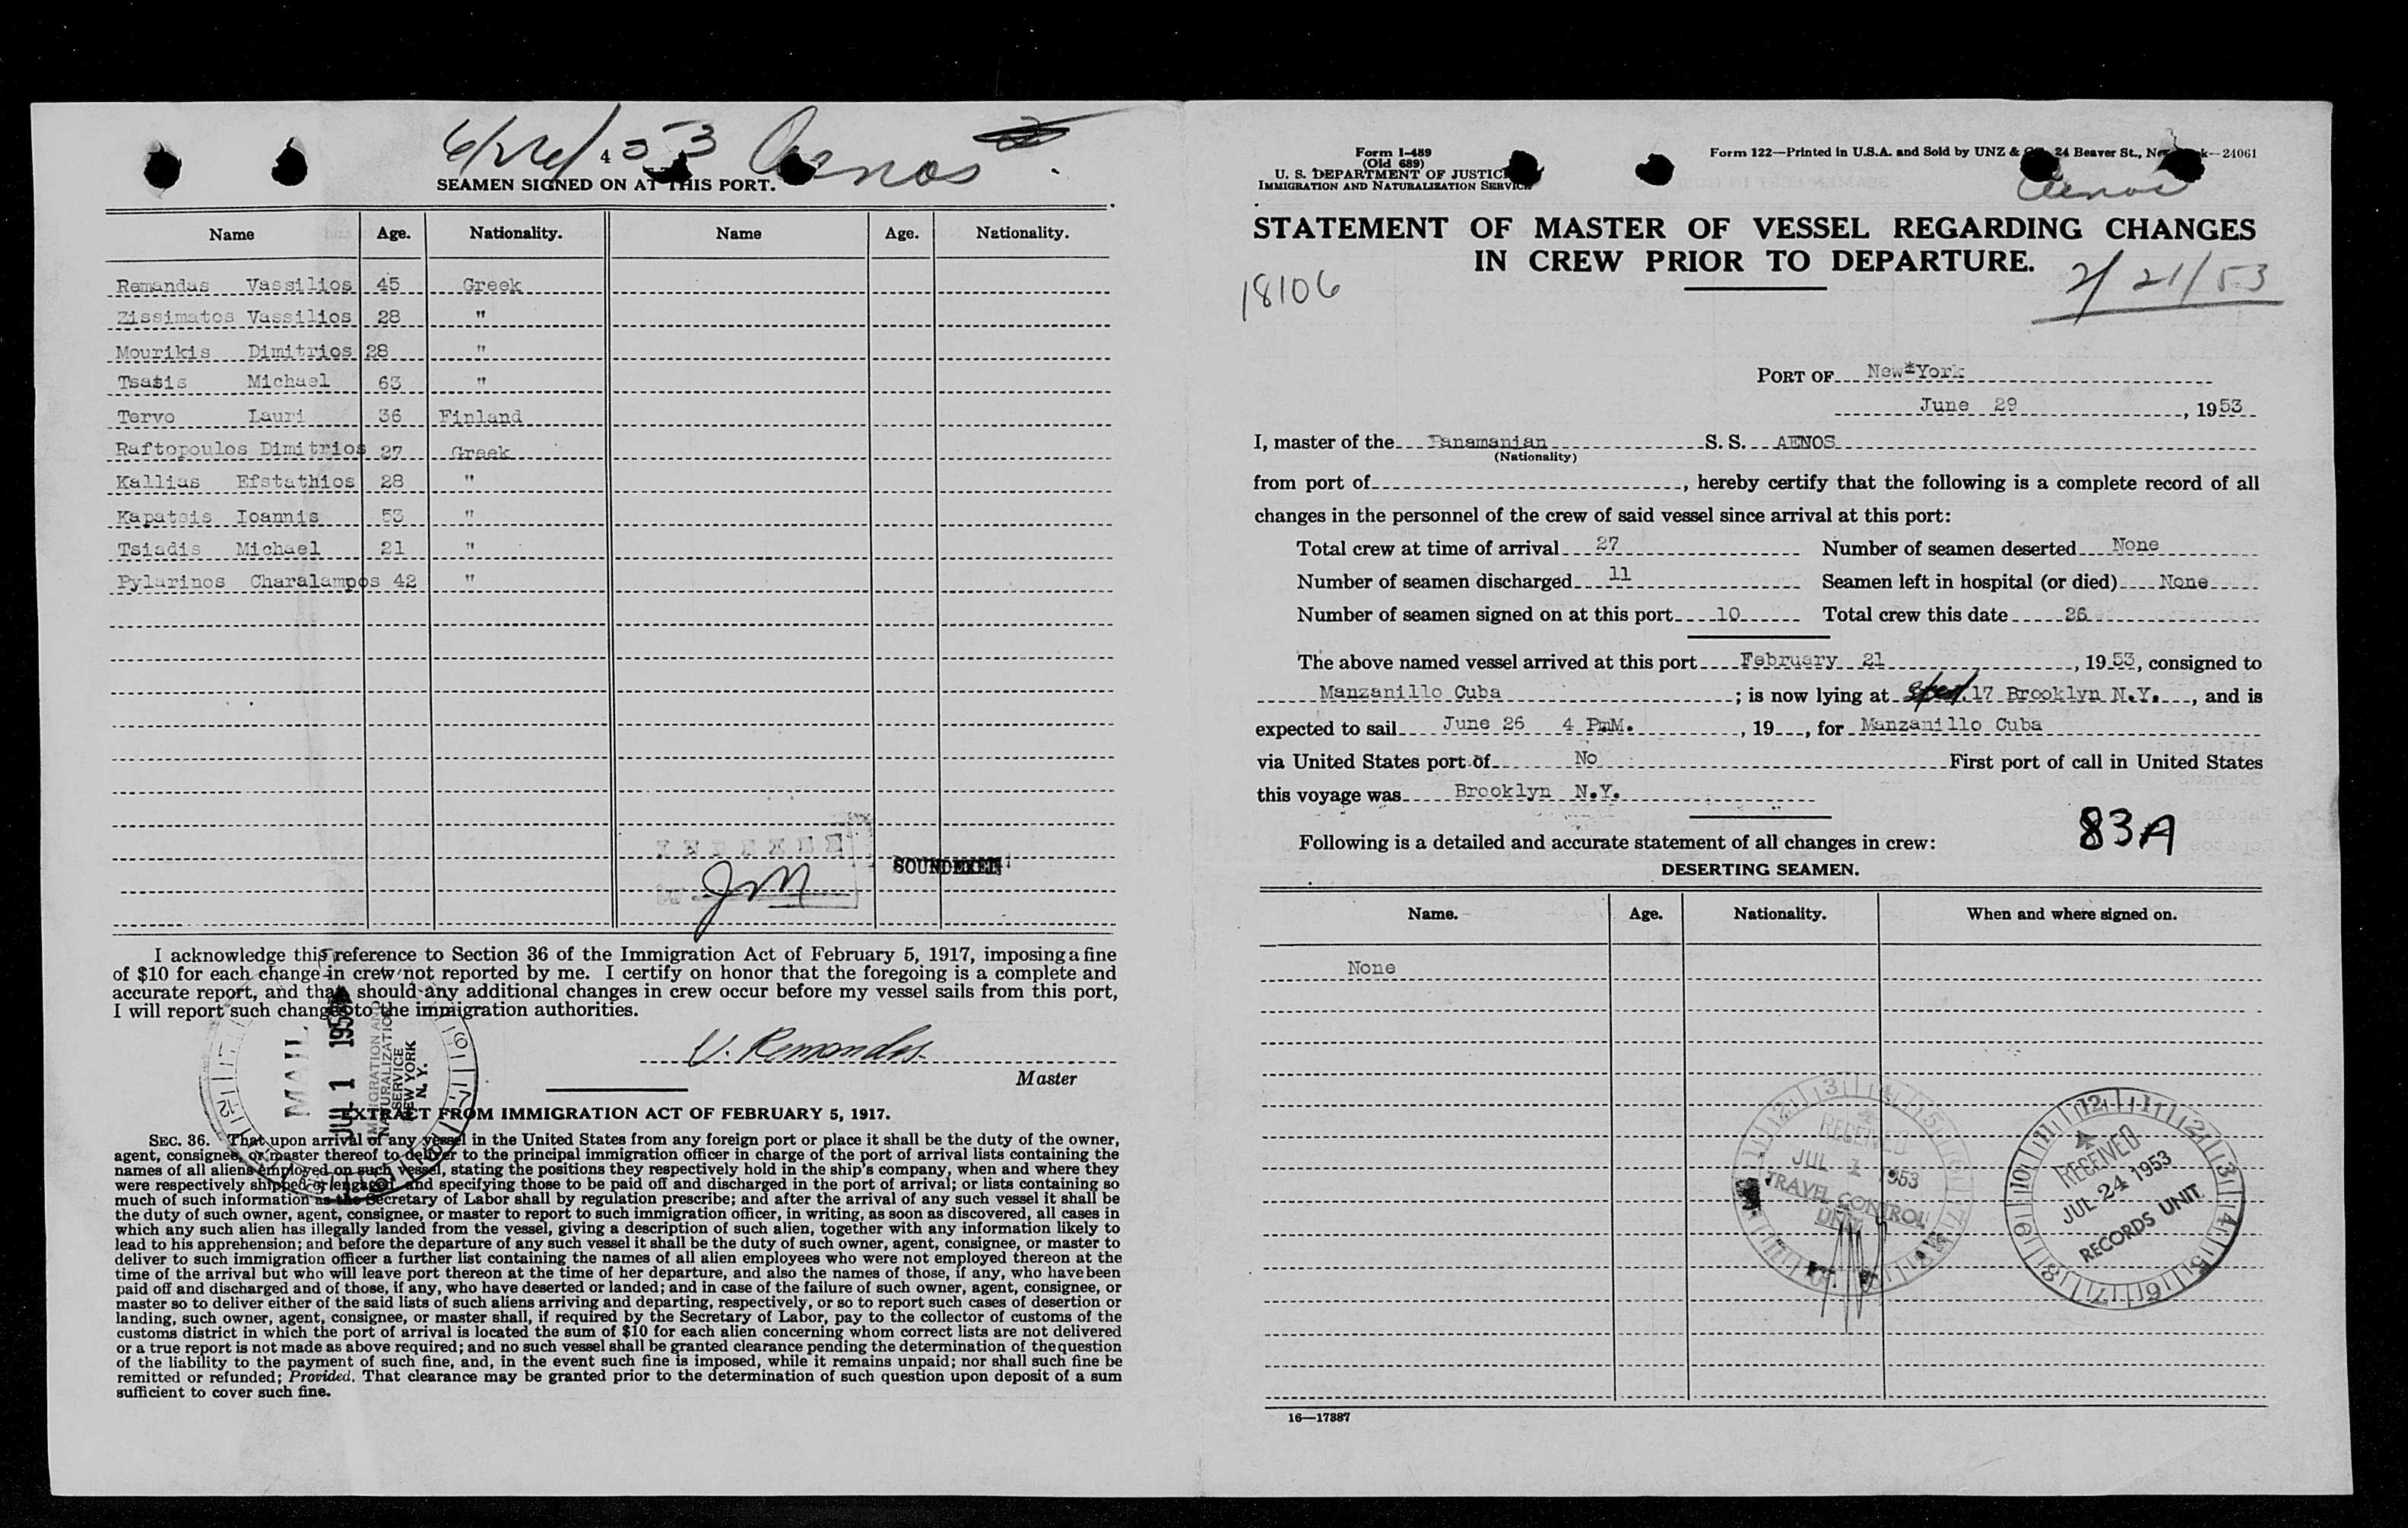 6/26/53 Aenos
4
SEAMEN SIGNED ON AT THIS PORT.
Name Age. Nationality. Name Age. Nationality.
Remandas Vassilios 45 Greek
Zissimatos Vassilios 28 "
Mourikis Dimitrios 28 "
Tsatis Michael 63 "
Tervo Lauri 36 Finland
Raftopoulos Dimitrios 27 Greek
Kallias Efstathios 28 "
Kapatsis Ioannis 53 "
Tsiadis Michael 21 "
Pylarinos Charalampos 42 "
INDEXED
SOUNDEXED
JM
I acknowledge this reference to Section 36 of the Immigration Act of February 5, 1917, imposing a fine
of $10 for each change in crew not reported by me. I certify on honor that the foregoing is a complete and
accurate report, and that should any additional changes in crew occur before my vessel sails from this port,
I will report such changes to the immigration authorities.
V. Remandas
Master
MAIL
JUL 1 1953
IMMIGRATION AND
NATURALIZATION
SERVICE
NEW YORK
N. Y.
EXTRACT FROM IMMIGRATION ACT OF FEBRUARY 5, 1917.
SEC. 36. That upon arrival of any vessel in the United States from any foreign port or place it shall be the duty of the owner,
agent, consignee, or master thereof to deliver to the principal immigration officer in charge of the port of arrival lists containing the
names of all aliens employed on such vessel, stating the positions they respectively hold in the ship's company, when and where they
were respectively shipped or engaged, and specifying those to be paid off and discharged in the port of arrival; or lists containing so
much of such information as the Secretary of Labor shall by regulation prescribe; and after the arrival of any such vessel it shall be
the duty of such owner, agent, consignee, or master to report to such immigration officer, in writing, as soon as discovered, all cases in
which any such alien has illegally landed from the vessel, giving a description of such alien, together with any information likely to
lead to his apprehension; and before the departure of any such vessel it shall be the duty of such owner, agent, consignee, or master to
deliver to such immigration officer a further list containing the names of all alien employees who were not employed thereon at the
time of the arrival but who will leave port thereon at the time of her departure, and also the names of those, if any, who have been
paid off and discharged and of those, if any, who have deserted or landed; and in case of the failure of such owner, agent, consignee, or
master so to deliver either of the said lists of such aliens arriving and departing, respectively, or so to report such cases of desertion or
landing, such owner, agent, consignee, or master shall, if required by the Secretary of Labor, pay to the collector of customs of the
customs district in which the port of arrival is located the sum of $10 for each alien concerning whom correct lists are not delivered
or a true report is not made as above required; and no such vessel shall be granted clearance pending the determination of the question
of the liability to the payment of such fine, and, in the event such fine is imposed, while it remains unpaid; nor shall such fine be
remitted or refunded; Provided, That clearance may be granted prior to the determination of such question upon deposit of a sum
sufficient to cover such fine.
Form I-489
(Old 689)
U. S. DEPARTMENT OF JUSTICE
IMMIGRATION AND NATURALIZATION SERVICE
Form 122—Printed in U.S.A. and Sold by UNZ & CO., 24 Beaver St., New York—24061
Aenos
STATEMENT OF MASTER OF VESSEL REGARDING CHANGES
IN CREW PRIOR TO DEPARTURE.
18106
2/21/53
PORT OF New*York
June 29, 1953
I, master of the Panamanian S. S. AENOS
(Nationality)
from port of , hereby certify that the following is a complete record of all
changes in the personnel of the crew of said vessel since arrival at this port:
Total crew at time of arrival 27 Number of seamen deserted None
Number of seamen discharged 11 Seamen left in hospital (or died) None
Number of seamen signed on at this port 10 Total crew this date 26
The above named vessel arrived at this port February 21, 1953, consigned to
Manzanillo Cuba; is now lying at 17 Brooklyn N.Y., and is
expected to sail June 26 4 PmM., 19 , for Manzanillo Cuba
via United States port of No First port of call in United States
this voyage was Brooklyn N.Y.
Following is a detailed and accurate statement of all changes in crew:
83A
DESERTING SEAMEN.
Name. Age. Nationality. When and where signed on.
None
RECEIVED
JUL 1 1953
TRAVEL CONTROL
UNIT
RECEIVED
JUL 24 1953
RECORDS UNIT
16—17387